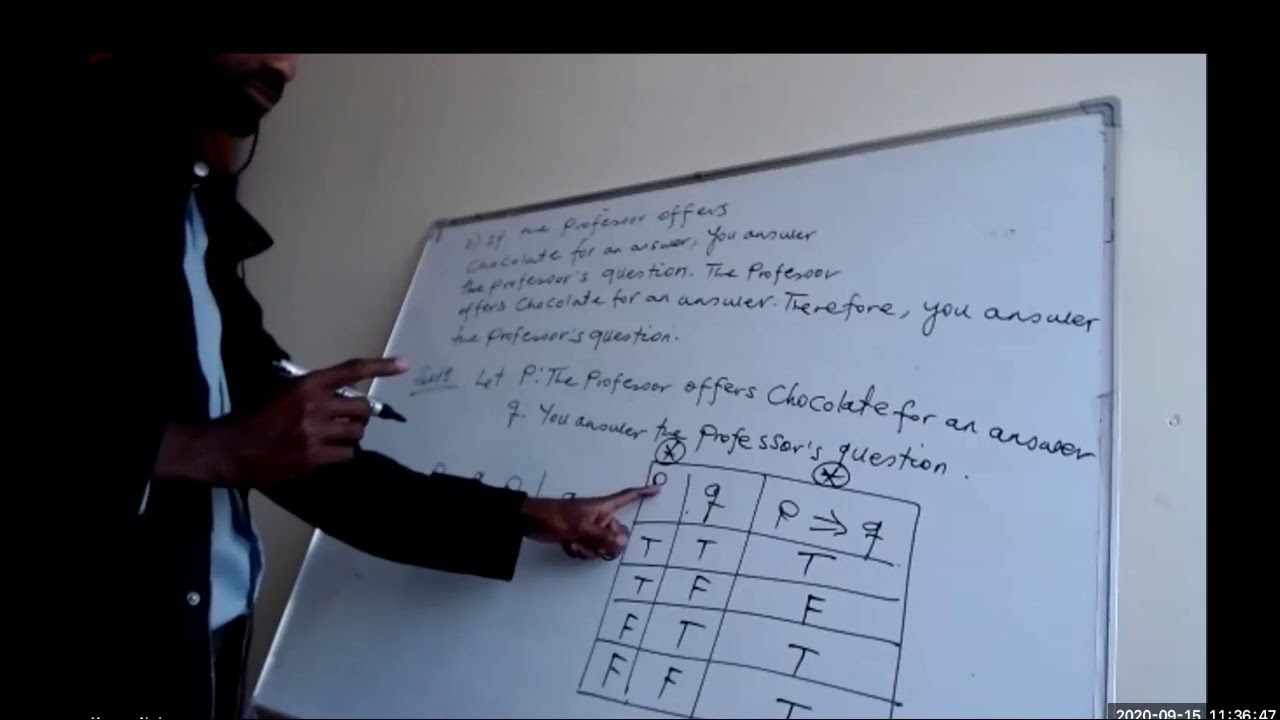 2) If the Professor offers
Chocolate for an answer, you answer
the professor's question. The Professor
offers Chocolate for an answer. Therefore, you answer
the Professor's question.
Let P: The Professor offers Chocolate for an answer
q. You answer the Professor's question.
P q P ⇒ q
T T T
T F F
F T T
F F T
2020-09-15 11:36:47